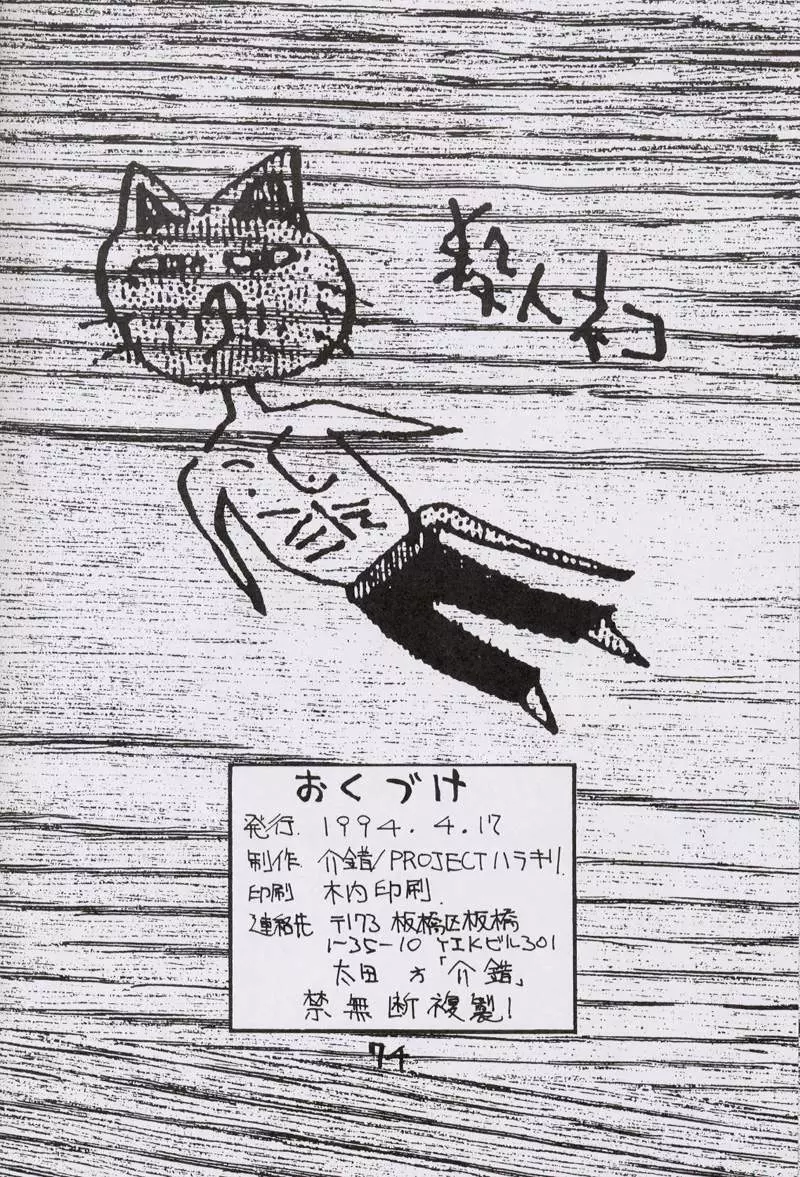 殺人ネコ
おくづけ
発行. 1994. 4.17
制作 介錯/PROJECTハラキリ.
印刷 木内印刷.
連絡先 〒173 板橋区板橋
1-35-10 YIKビル301
太田 方「介錯」
禁無断複製!
74